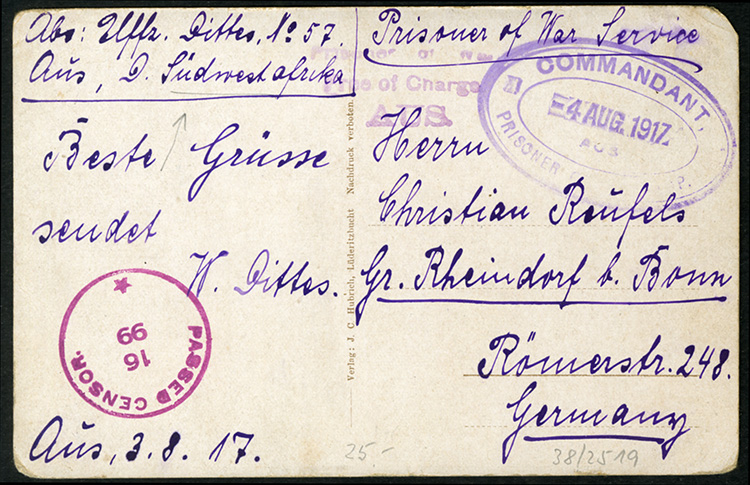 Abs: Uffz. Dittes, No 57.
Aus, D. Südwestafrika
Beste Grüsse
sendet
W. Dittes.
PASSED CENSOR.
16
99
Aus, 3. 8. 17.
25-
Verlag: J. C. Hubrich, Lüderitzbucht Nachdruck verboten.
Prisoner of War Service
Prisoner of War
Free of Charge
AUS.
COMMANDANT,
4 AUG. 1917
AUS
PRISONER P.
Herrn
Christian Reufels
Gr. Rheindorf b. Bonn
Römerstr. 248.
Germany
38/2519